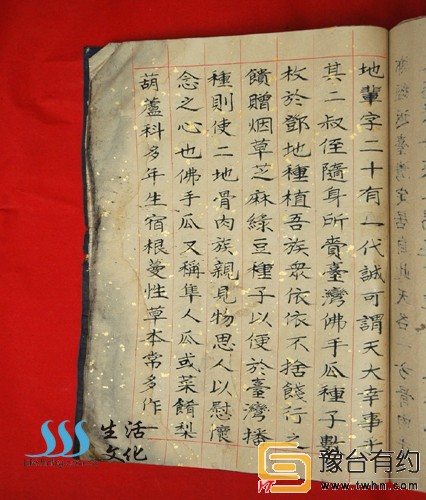 返臺灣定居自此天各一方骨肉
地輩字二十有一代誠可謂天大幸事
其二叔侄隨身所賫臺灣佛手瓜種子數
枚於鄧地種植吾族衆依依不捨餞行之
饋贈烟草芝麻綠豆種子以便於臺灣播
種則使二地骨肉族親見物思人以慰懷
念之心也佛手瓜又稱隼人瓜或菜餚梨
葫蘆科多年生宿根蔓性草本常多作
生活
文化
豫台有约
www.twhn.com